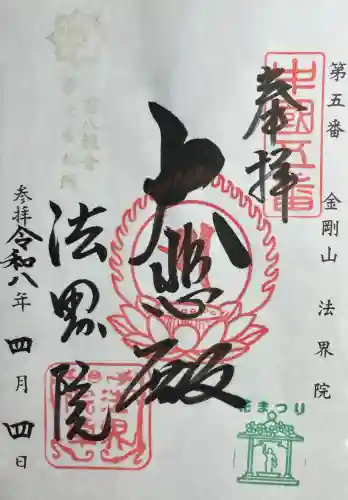 第五番　金剛山　法界院
奉拝
中國五番
大悲殿
法界院
参拝令和八年四月四日
花まつり